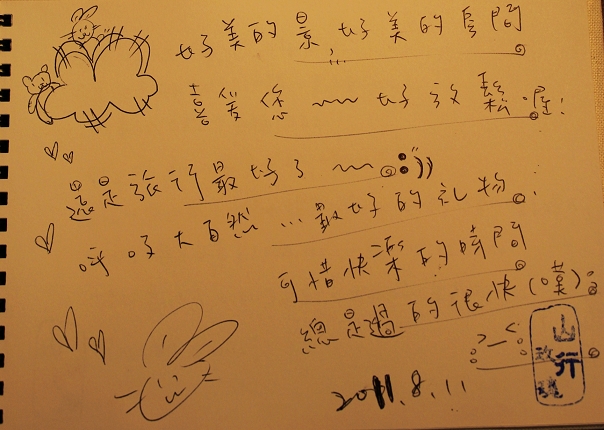 好美的景...好美的房間
喜愛您~~好放鬆喔!
還是旅行最好了~~
呼吸大自然...最好的礼物
可惜快樂的時間
總是過的很快(嘆)
>_<
2011.8.11
山行